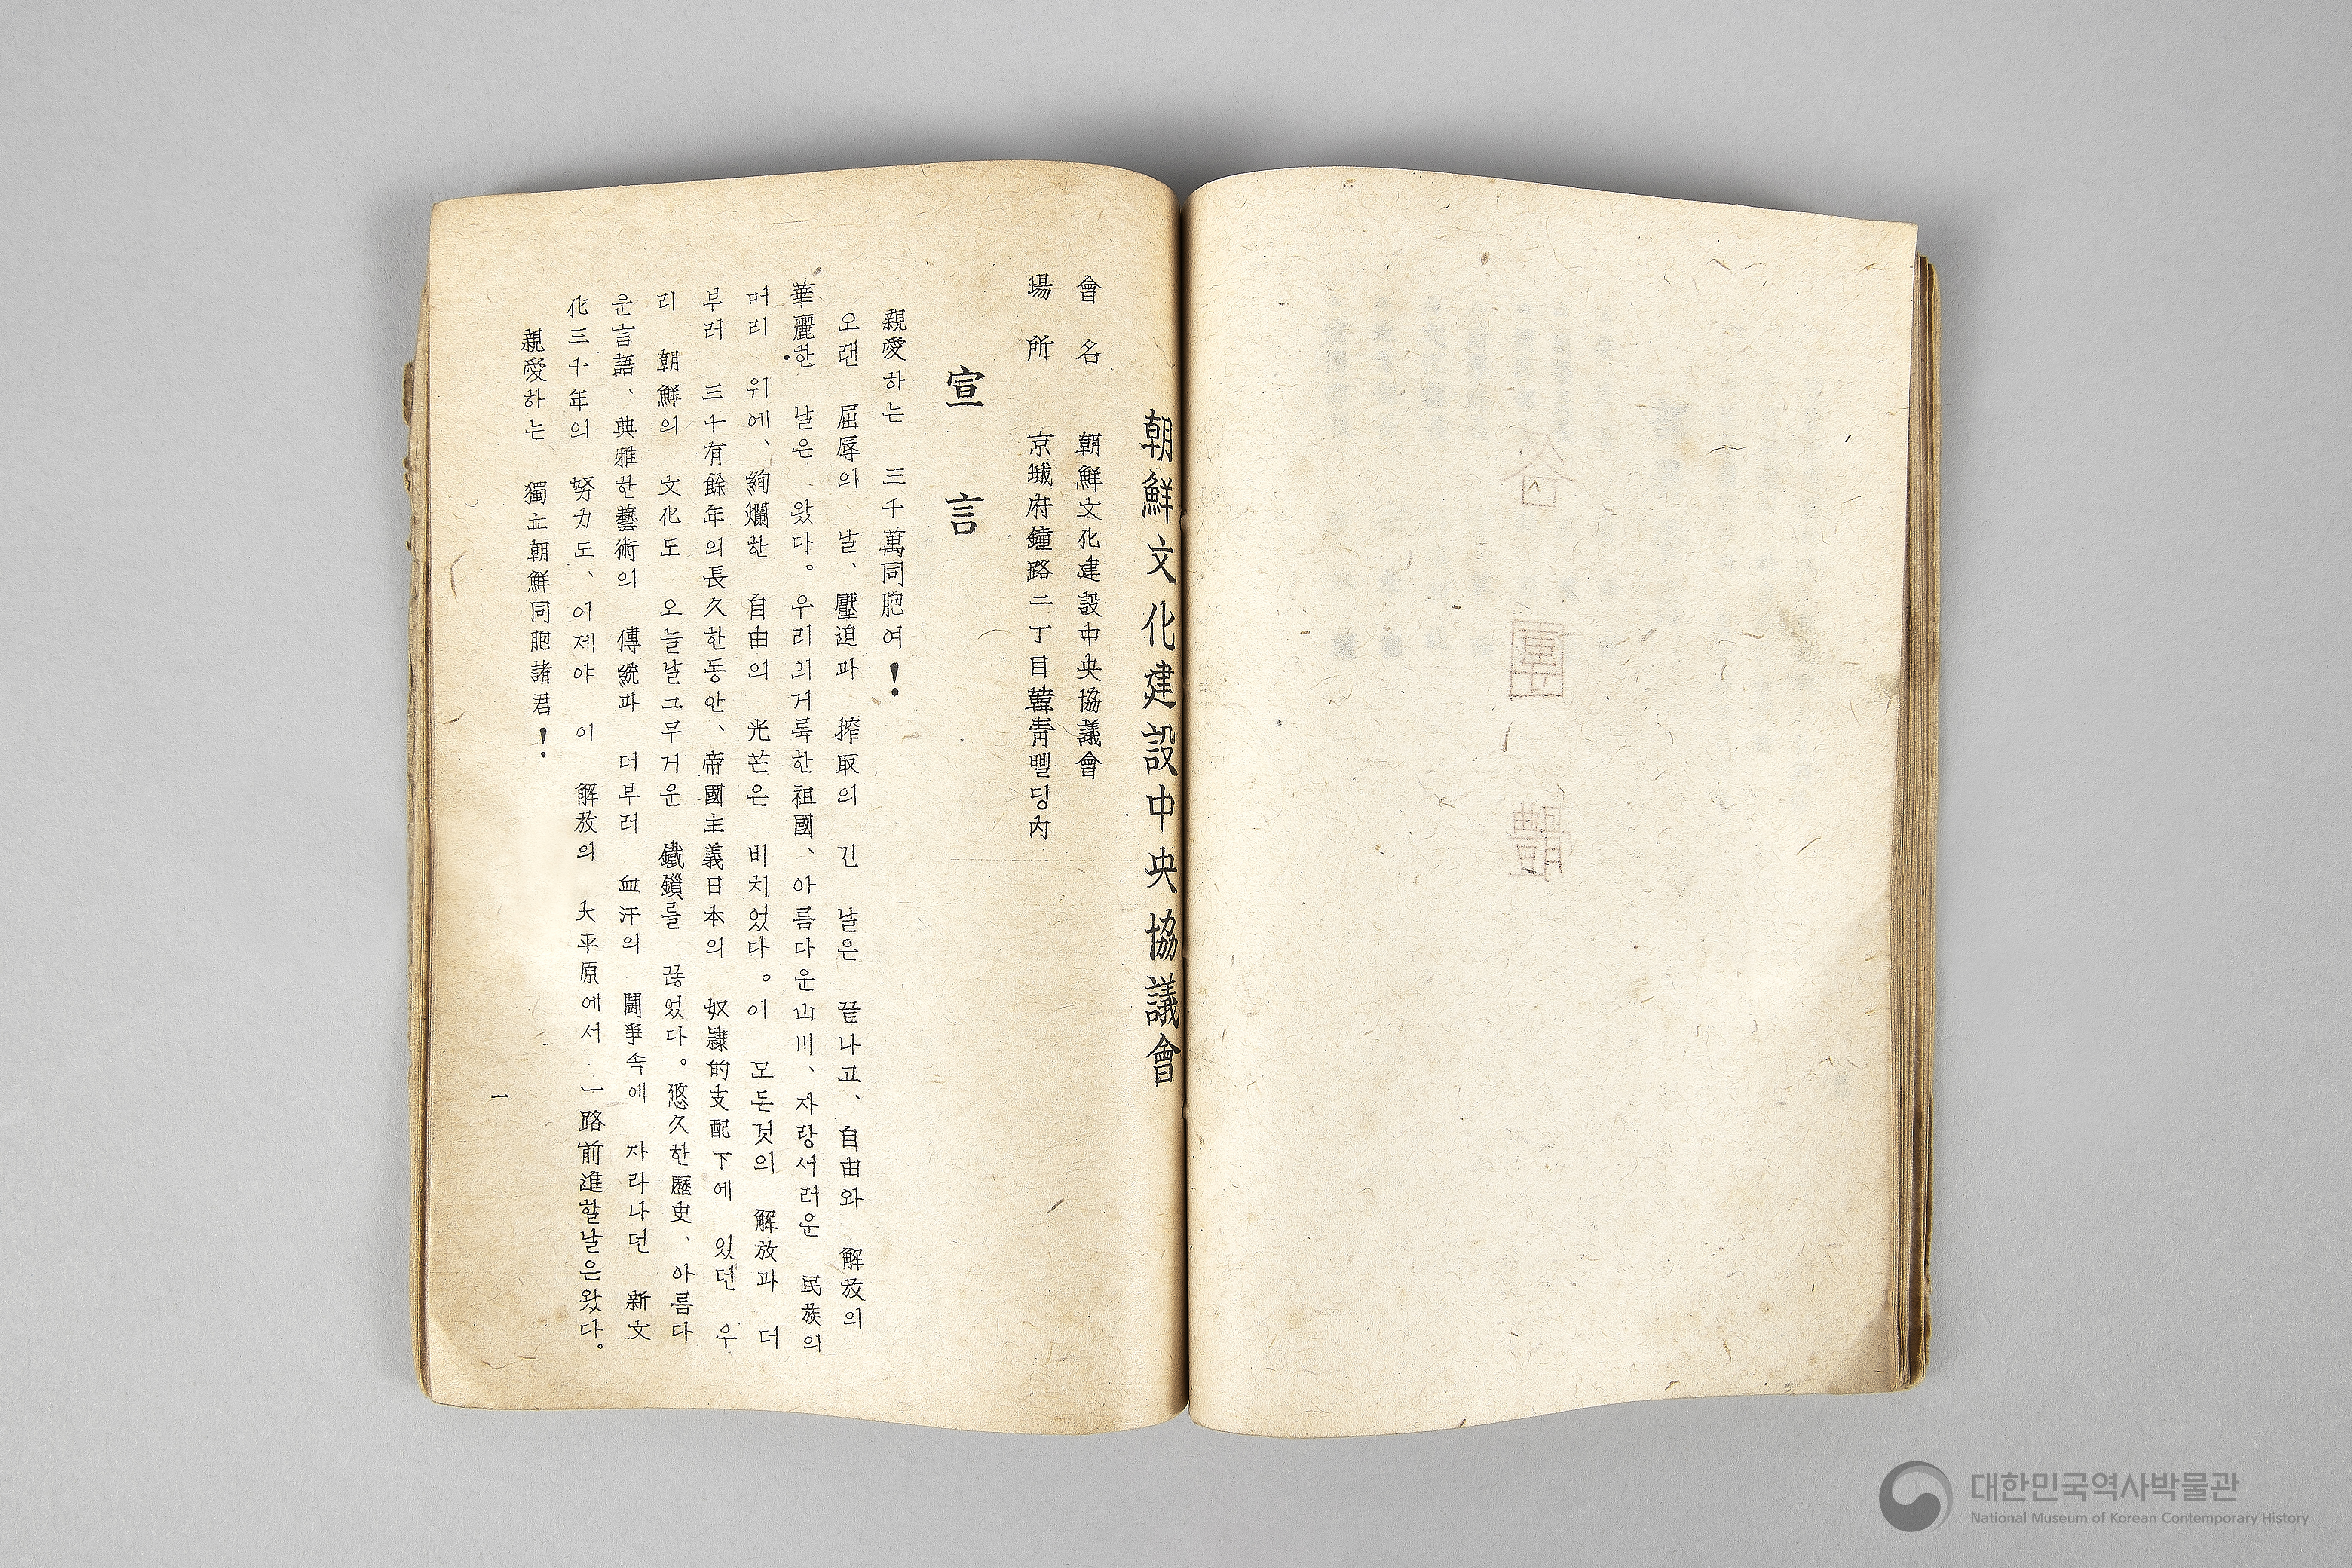 朝鮮文化建設中央協議會
會名 朝鮮文化建設中央協議會
場所 京城府鐘路二丁目韓靑삘딩內
宣言
親愛하는 三千萬同胞여!
오랜 屈辱의 날、壓迫과 搾取의 긴 날은 끝나고、自由와 解放의
華麗한 날은 왔다。우리의거륵한祖國、아름다운山川、자랑서러운 民族의
머리 위에、絢爛한 自由의 光芒은 비치었다。이 모든것의 解放과 더
부러 三十有餘年의長久한동안、帝國主義日本의 奴隷的支配下에 있던 우
리 朝鮮의 文化도 오늘날그무거운 鐵鎖를 끊었다。悠久한歷史、아름다
운言語、典雅한藝術의 傳統과 더부러 血汗의 鬪爭속에 자라나던 新文
化三十年의 努力도、이제야 이 解放의 大平原에서 一路前進할날은왔다。
親愛하는 獨立朝鮮同胞諸君!
一
대한민국역사박물관
National Museum of Korean Contemporary History